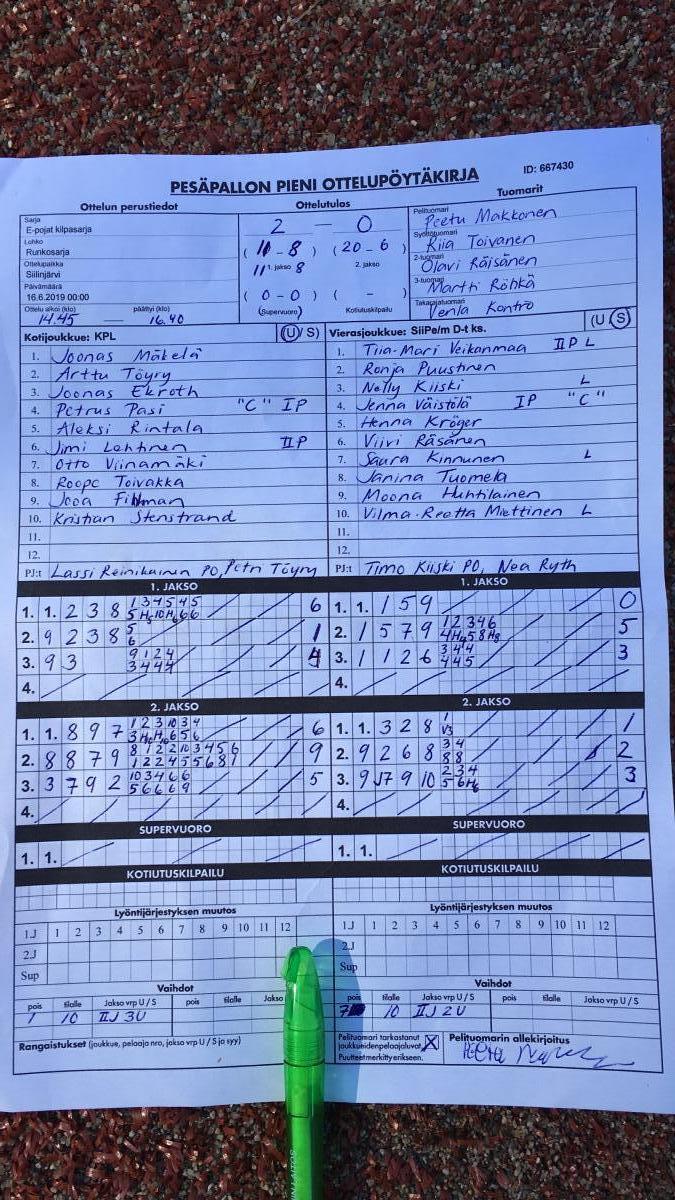 PESÄPALLON PIENI OTTELUPÖYTÄKIRJA
ID: 667430
Ottelun perustiedot
Ottelutulos
Tuomarit
Sarja
E-pojat kilpasarja
Lohko
Runkosarja
Ottelupaikka
Siilinjärvi
Päivämäärä
16.6.2019 00:00
Ottelu alkoi (klo) päättyi (klo)
14.45 — 16.40
2 — 0
( 11 - 8 ) ( 20 - 6 )
11 1. jakso 8 2. jakso
( 0 - 0 ) ( - )
(Supervuoro) Kotiutuskilpailu
Pelituomari
Peetu Makkonen
Syöttötuomari
Riia Toivanen
2-tuomari
Olavi Räisänen
3-tuomari
Martti Röhkä
Takarajatuomari
Venla Kontro
Kotijoukkue: KPL (U / S)
1. Joonas Mäkelä
2. Arttu Töyry
3. Joonas Ekroth
4. Petrus Pasi "C" IP
5. Aleksi Rintala
6. Jimi Lehtinen IIP
7. Otto Viinamäki
8. Roope Toivakka
9. Jooa Fillman
10. Kristian Stenstrand
11.
12.
PJ:t Lassi Reinikainen PO, Petri Töyry
Vierasjoukkue: SiiPe/m D-t ks. (U / S)
1. Tiia-Mari Veikanmaa IIP L
2. Ronja Puustinen
3. Nelly Kiiski L
4. Jenna Väistölä IP "C"
5. Henna Kröger
6. Viivi Räsänen
7. Saara Kinnunen L
8. Janina Tuomela
9. Moona Huhtilainen
10. Vilma-Reetta Miettinen L
11.
12.
PJ:t Timo Kiiski PO, Nea Ryth
1. JAKSO
1. 1. 2 3 8 1 3 4 5 4 5 6
5 H6 10 H6 6 6
2. 9 2 3 8 5 1
6
3. 9 3 9 1 2 4 4
3 4 4 4
4.
2. JAKSO
1. 1. 8 9 7 1 2 3 10 3 4 6
3 H6 H6 6 5 6
2. 8 8 7 9 8 1 2 2 10 3 4 5 6 9
1 2 2 4 5 5 6 8 1
3. 3 7 9 2 10 3 4 6 6 5
5 6 6 6 9
4.
SUPERVUORO
1. 1.
KOTIUTUSKILPAILU
Lyöntijärjestyksen muutos
1.J 1 2 3 4 5 6 7 8 9 10 11 12
2.J
Sup
Vaihdot
pois tilalle Jakso vrp U / S pois tilalle Jakso
1 10 IIJ 3U
Rangaistukset (joukkue, pelaaja nro, jakso vrp U / S ja syy)
1. JAKSO
1. 1. 1 5 9 0
2. 1 5 7 9 1 2 3 4 6 5
4 H6 5 8 H8
3. 1 1 2 6 3 4 4 3
4 4 5
4.
2. JAKSO
1. 1. 3 2 8 1 1
V3
2. 9 2 6 8 3 4 2
8 8
3. 9 J7 9 10 2 3 4 3
5 6 H6
4.
SUPERVUORO
1. 1.
KOTIUTUSKILPAILU
Lyöntijärjestyksen muutos
1.J 1 2 3 4 5 6 7 8 9 10 11 12
2.J
Sup
Vaihdot
pois tilalle Jakso vrp U / S pois tilalle Jakso vrp U / S
7 10 IIJ 2U
Pelituomari tarkastanut
joukkueiden pelaajaluvat. X
Puutteet merkitty erikseen.
Pelituomarin allekirjoitus